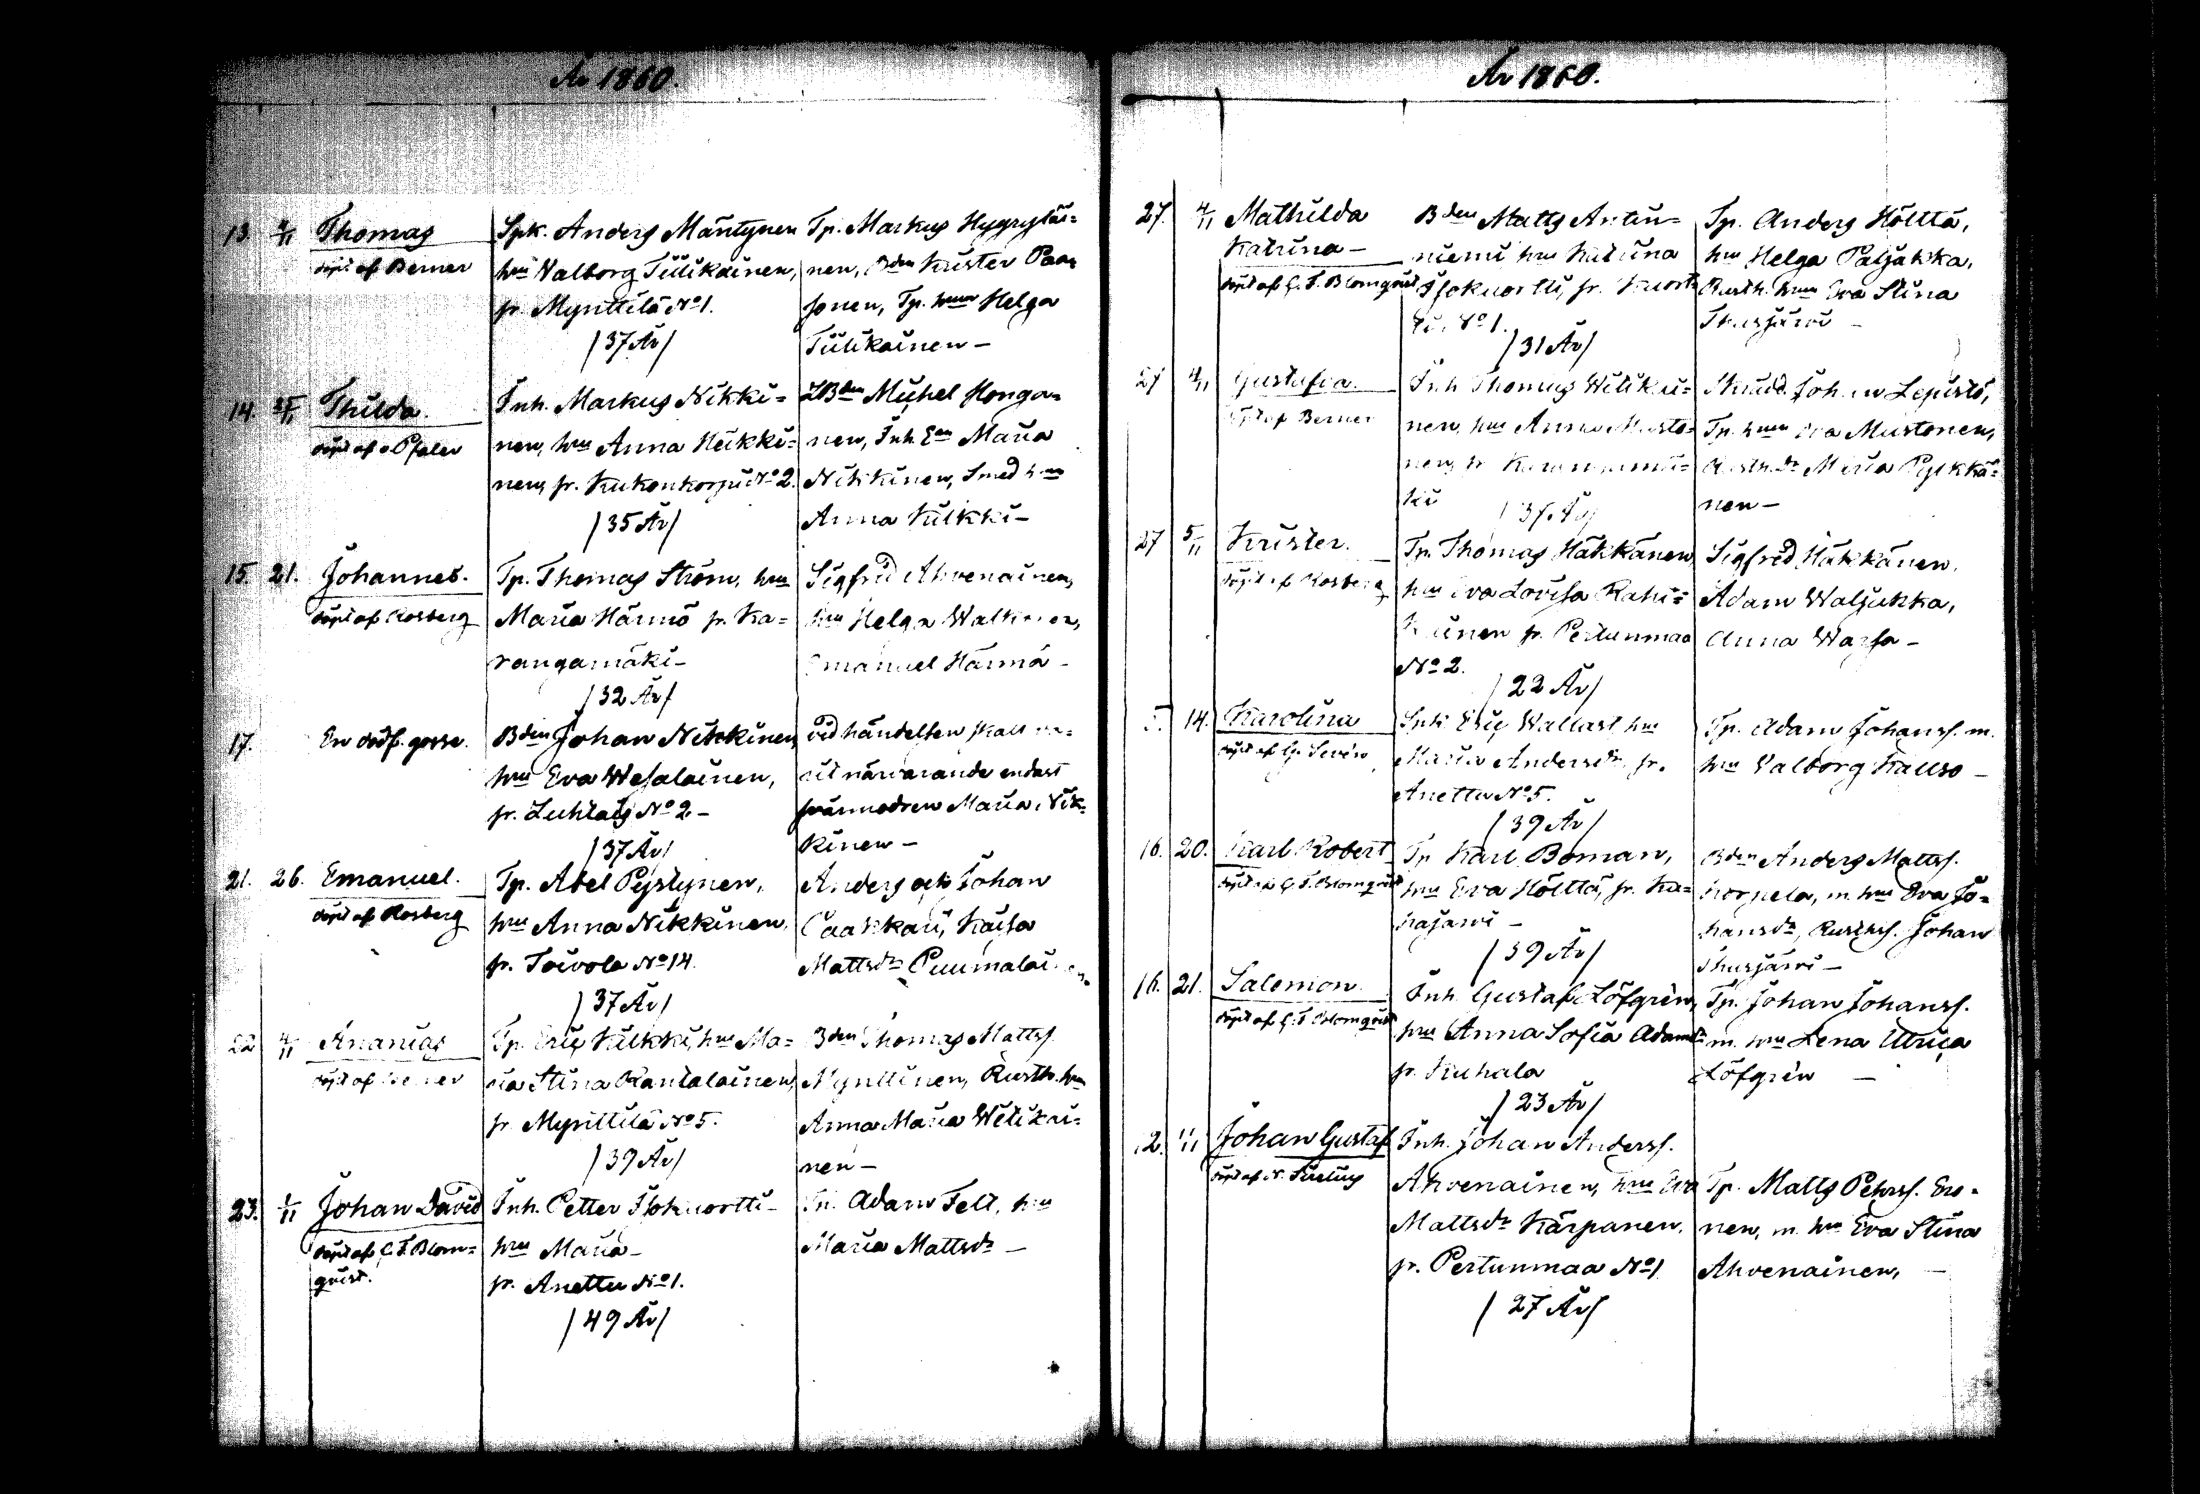 År 1860.
13. 2/11 Thomas
döpt af Berner
Spk. Anders Mäntynen
hru Valborg Tiilikainen,
fr. Mynttilä No 1.
/37 År/
Tp. Markus Hygryläi=
nen, Bden Krister Paa=
sonen, Tp. hrun Helga
Tiilikainen –
14. Thilda.
döpt af
Inh. Markus Nikki=
nen, hru Anna Heikki=
nen, fr. Kukonkorpi No 2.
/35 År/
Bden Michel Honga=
nen, Inh. Maria
Nikkinen, Smed hru
Anna Kilkki –
15. 21. Johannes.
döpt af Rosberg
Tp. Thomas Ström, hru
Maria Härmö fr. Ka=
rangamäki –
/32 År/
Sigfrid Ahvenainen,
hru Helga
Emanuel Härmä –
17. En dödf. gosse.
Bden Johan Nikkinen
hru Eva Wesalainen,
fr. No 2 –
/37 År/
vid händelsen skall va=
rit närvarande endast
svärmodren Maria Nik=
kinen –
21. 26. Emanuel.
döpt af Rosberg
Tp. Abel Pöystynen,
hru Anna Nikkinen,
fr. Toivola No 14.
/37 År/
Anders och Johan
Kaisa
Mattsdr
22. 4/11 Ananias
döpt af Berner
Tp. Eric Kilkki, hru Ma=
ria Stina Rantalainen,
fr. Mynttilä No 5.
/39 År/
Bden Thomas Mattss.
Mynttinen, Rusth. hru
Anna Maria Wilikai=
nen –
23. 1/11 Johan David
döpt af C. F. Blom=
qvist.
Inh. Petter Isokuortti –
hru Maria –
fr. Anettu No 1.
/49 År/
Adam Felt, hru
Maria Mattsdr –
År 1860.
27. 4/11 Mathilda
Katrina –
döpt af C. F. Blomqvist
Bden Matts Antti=
niemi hru Katrina
Isokuortti, fr. Kuort=
ti, No 1.
/31 År/
Tp. Anders Hölttä,
hru Helga Paljakka,
Rusth. hrun Eva Stina
–
27 4/11 Gustafva.
döpt af Berner
Inh. Thomas Wilikai=
nen, hru Anna Musto=
nen, fr.
ki
/37 År/
Johan Lepistö,
Tp. hrun Eva Mustonen,
Rusth. dr Maria Pylkkä=
nen –
27 5/11 Krister.
döpt af Rosberg
Tp. Thomas Häkkänen
hru Eva Lovisa
fr. Pertunmaa
No 2.
/22 År/
Sigfrid Häkkänen,
Adam Waljakka,
Anna Warsa –
5. 14. Karolina
döpt af G. Sevén
Spk. Eric Wallast hru
Maria Andersdr, fr.
Anettu No 5.
/39 År/
Tp. Adam Johanss. m.
hru Valborg Kauso –
16. 20. Karl Robert
döpt af C. F. Blomqvist
Tp. Karl Boman,
hru Eva Hölttä, fr. Ku=
hajärvi –
/39 År/
Bden Anders Mattss.
Korpela, m. hru Eva Jo=
hansdr, Rusthss. Johan
–
16. 21. Salemon.
döpt af C. F. Blomqvist
Inh. Gustaf Löfgrén,
hru Anna Sofia Adamsdr
fr. Kuhala
/23 År/
Tp. Johan Johanss.
m. hru Lena Ulrica
Löfgrén –
Johan Gustaf
döpt af N. Sirelius
Inh. Johan Anderss.
Ahvenainen, hru Eva
Mattsdr Kärpänen,
fr. Pertunmaa No 1
/27 År/
Tp. Matts Pehrss. Ero=
nen, m. hru Eva Stina
Ahvenainen, –